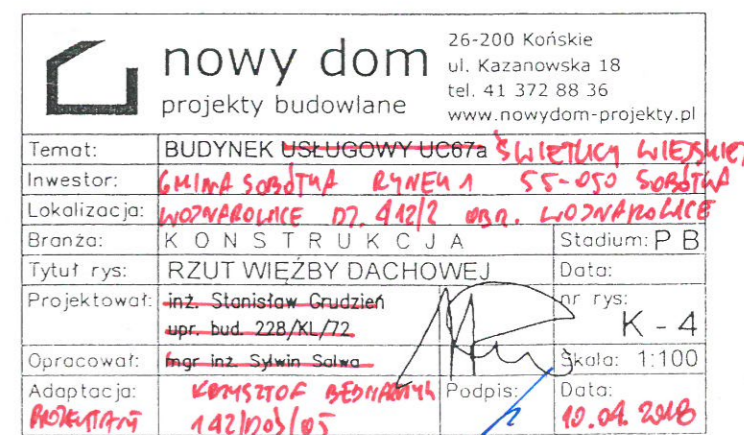 nowy dom
projekty budowlane
26-200 Końskie
ul. Kazanowska 18
tel. 41 372 88 36
www.nowydom-projekty.pl
Temat: BUDYNEK USŁUGOWY UC67a ŚWIETLICY WIEJSKIEJ
Inwestor: GMINA SOBÓTKA RYNEK 1 55-050 SOBÓTKA
Lokalizacja: WOJNAROWICE DZ. 412/2 OBR. WOJNAROWICE
Branża: KONSTRUKCJA Stadium: PB
Tytuł rys: RZUT WIĘŹBY DACHOWEJ Data:
Projektował: inż. Stanisław Grudzień nr rys:
upr. bud. 228/KL/72 K - 4
Opracował: mgr inż. Sylwin Salwa Skala: 1:100
Adaptacja: KRZYSZTOF BEDNARCZYK Podpis: Data:
PROJEKTANT 142/DOŚ/05 10.04.2018